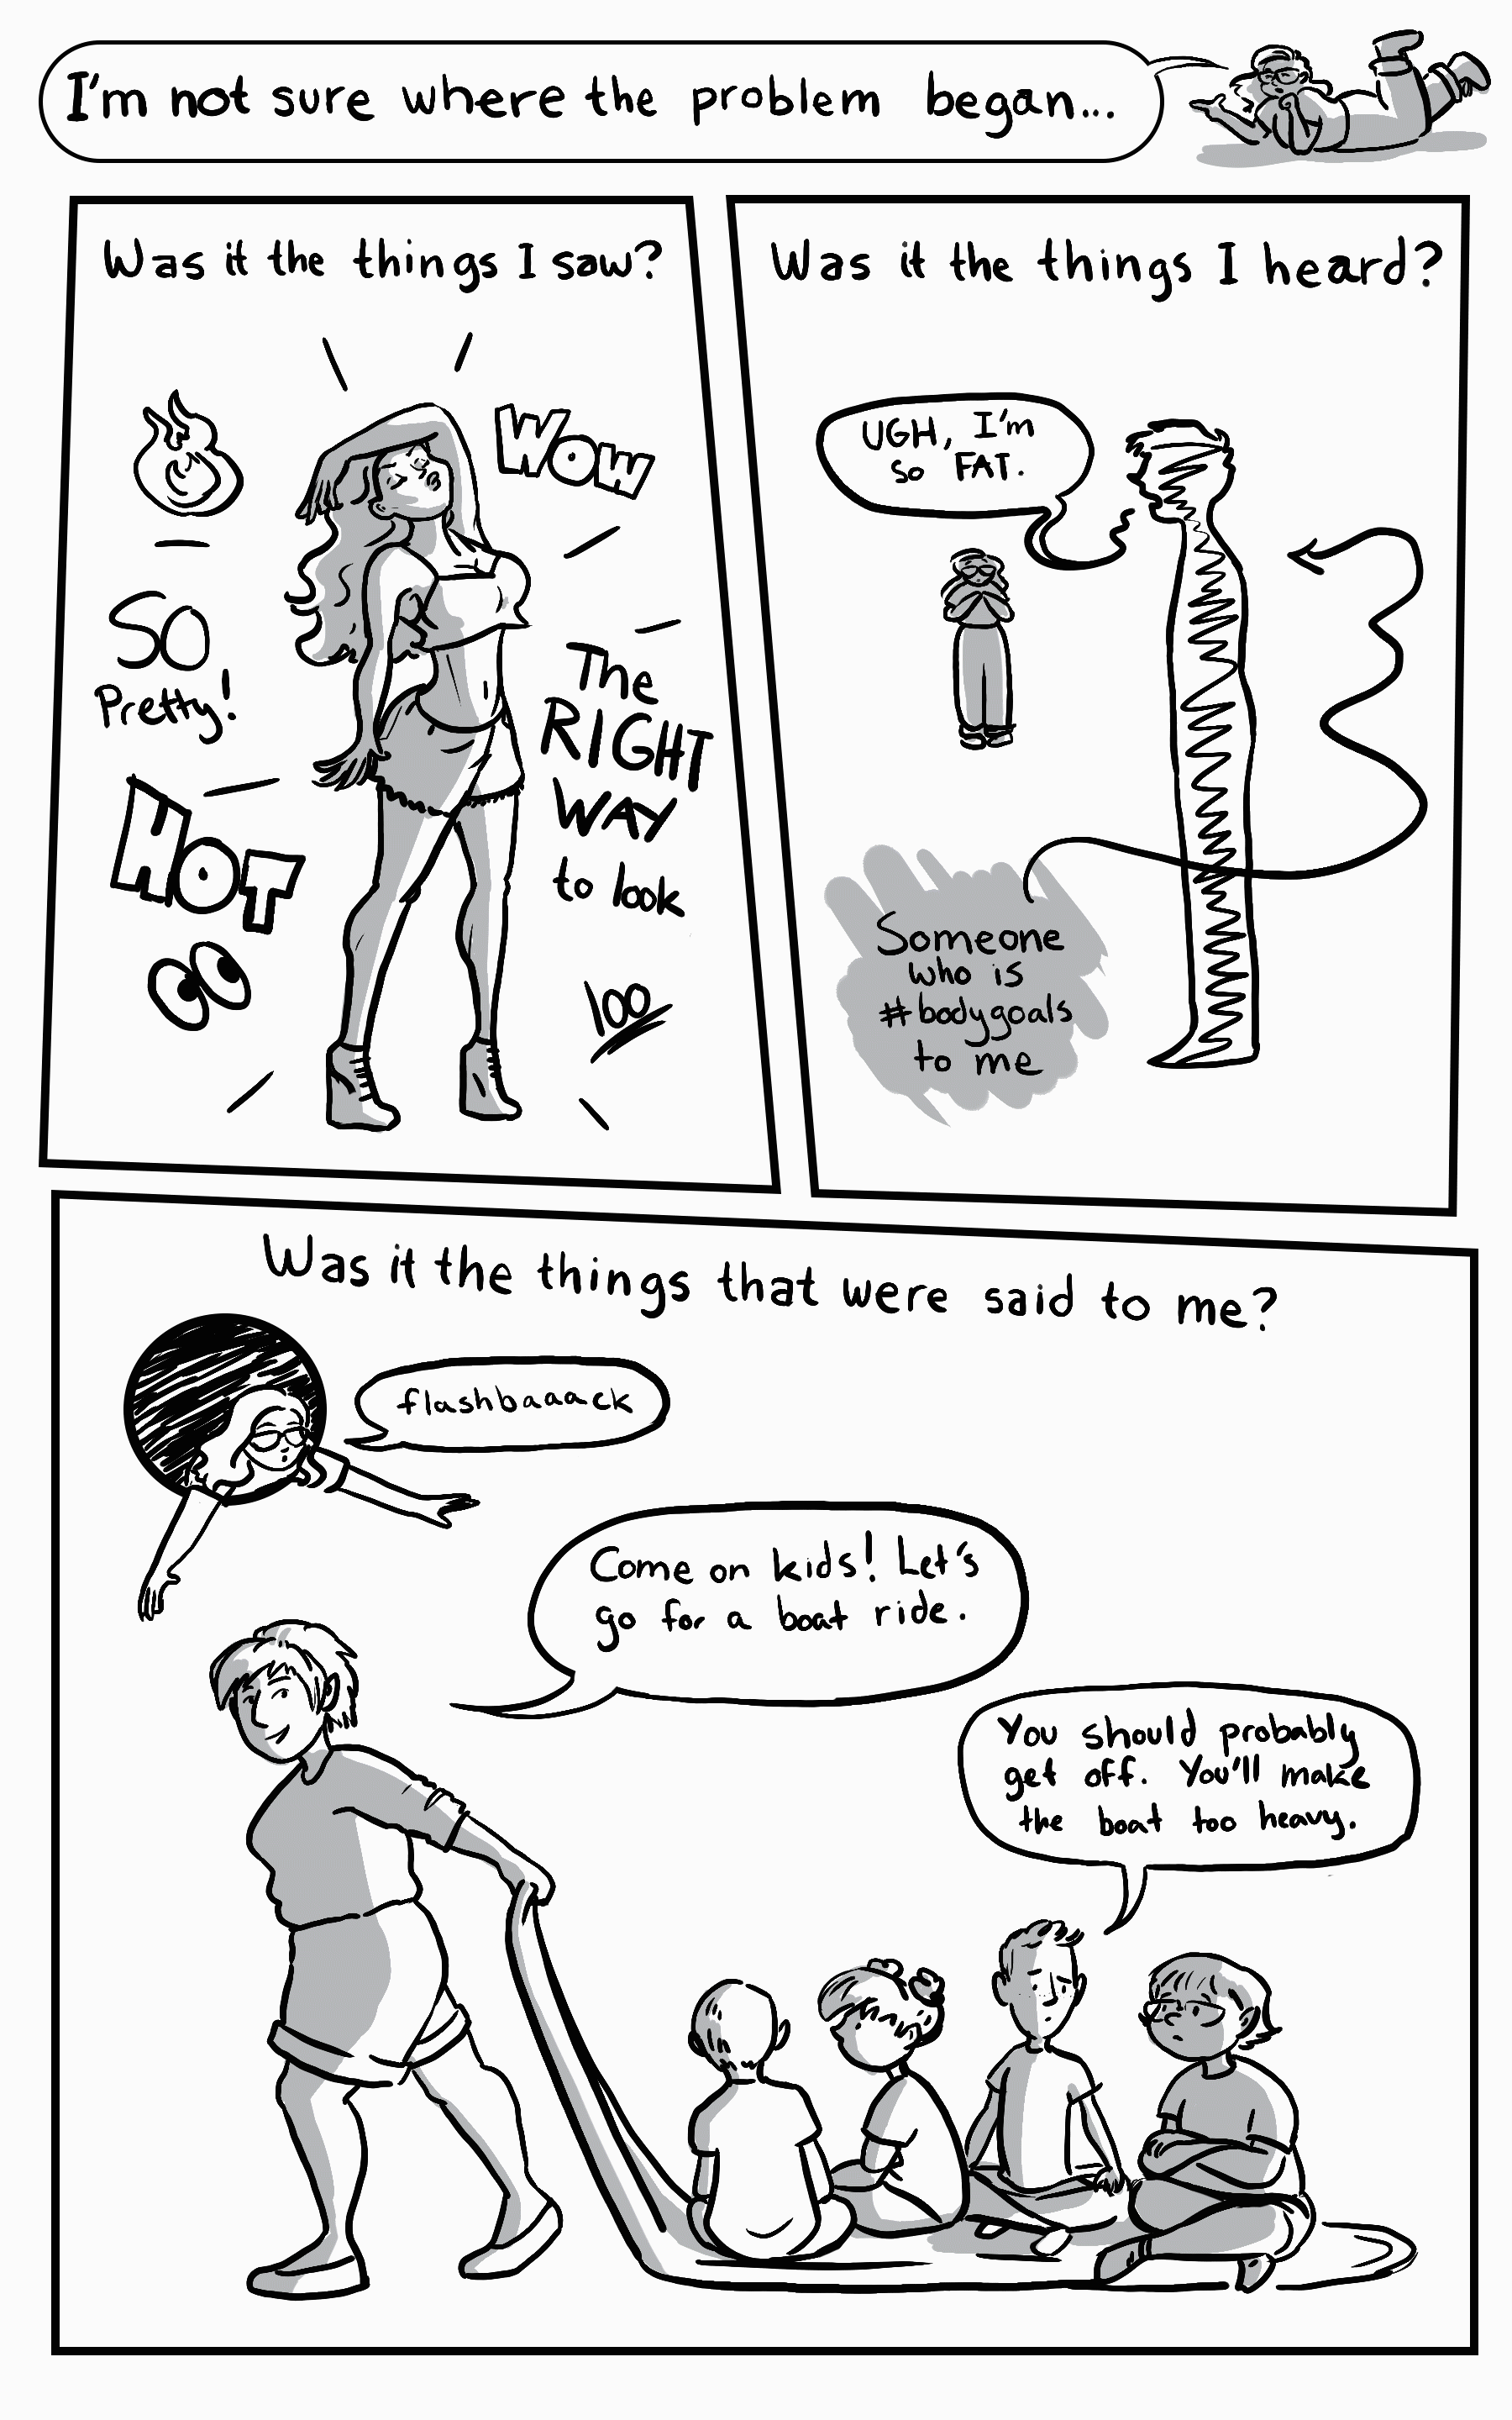 I'm not sure where the problem began...
Was it the things I saw?
WOW
SO
Pretty!
The
RIGHT
WAY
to look
HOT
100
Was it the things I heard?
UGH, I'm
so FAT.
Someone
who is
#bodygoals
to me
Was it the things that were said to me?
flashbaaack
Come on kids! Let's
go for a boat ride.
You should probably
get off. You'll make
the boat too heavy.